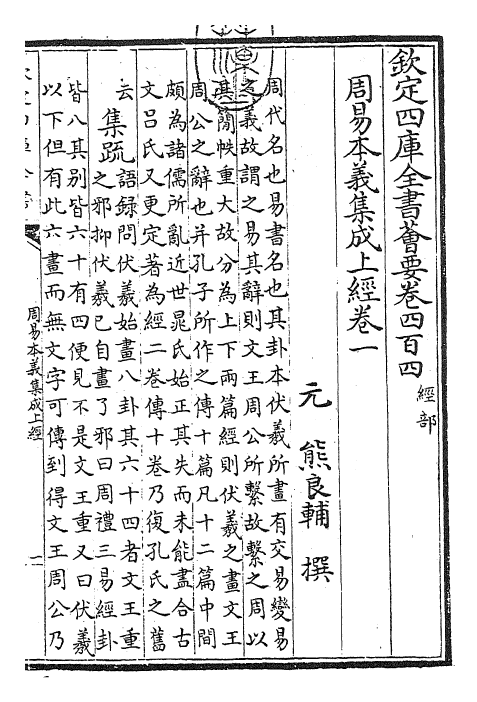 欽定四庫全書薈要卷四百四
經部
周易本義集成上經卷一
元　熊良輔　撰
周代名也易書名也其卦本伏羲所畫有交易變易
之義故謂之易其辭則文王周公所繫故繫之周以
其簡帙重大故分為上下兩篇經則伏羲之畫文王
周公之辭也并孔子所作之傳十篇凡十二篇中間
頗為諸儒所亂近世晁氏始正其失而未能盡合古
文呂氏又更定著為經二卷傳十卷乃復孔氏之舊
云
集疏
語録問伏羲始畫八卦其六十四者文王重
之邪抑伏羲已自畫了邪曰周禮三易經卦
皆八其别皆六十有四便見不是文王重又曰伏羲
以下但有此六畫而無文字可傳到得文王周公乃
周易本義集成上經
一